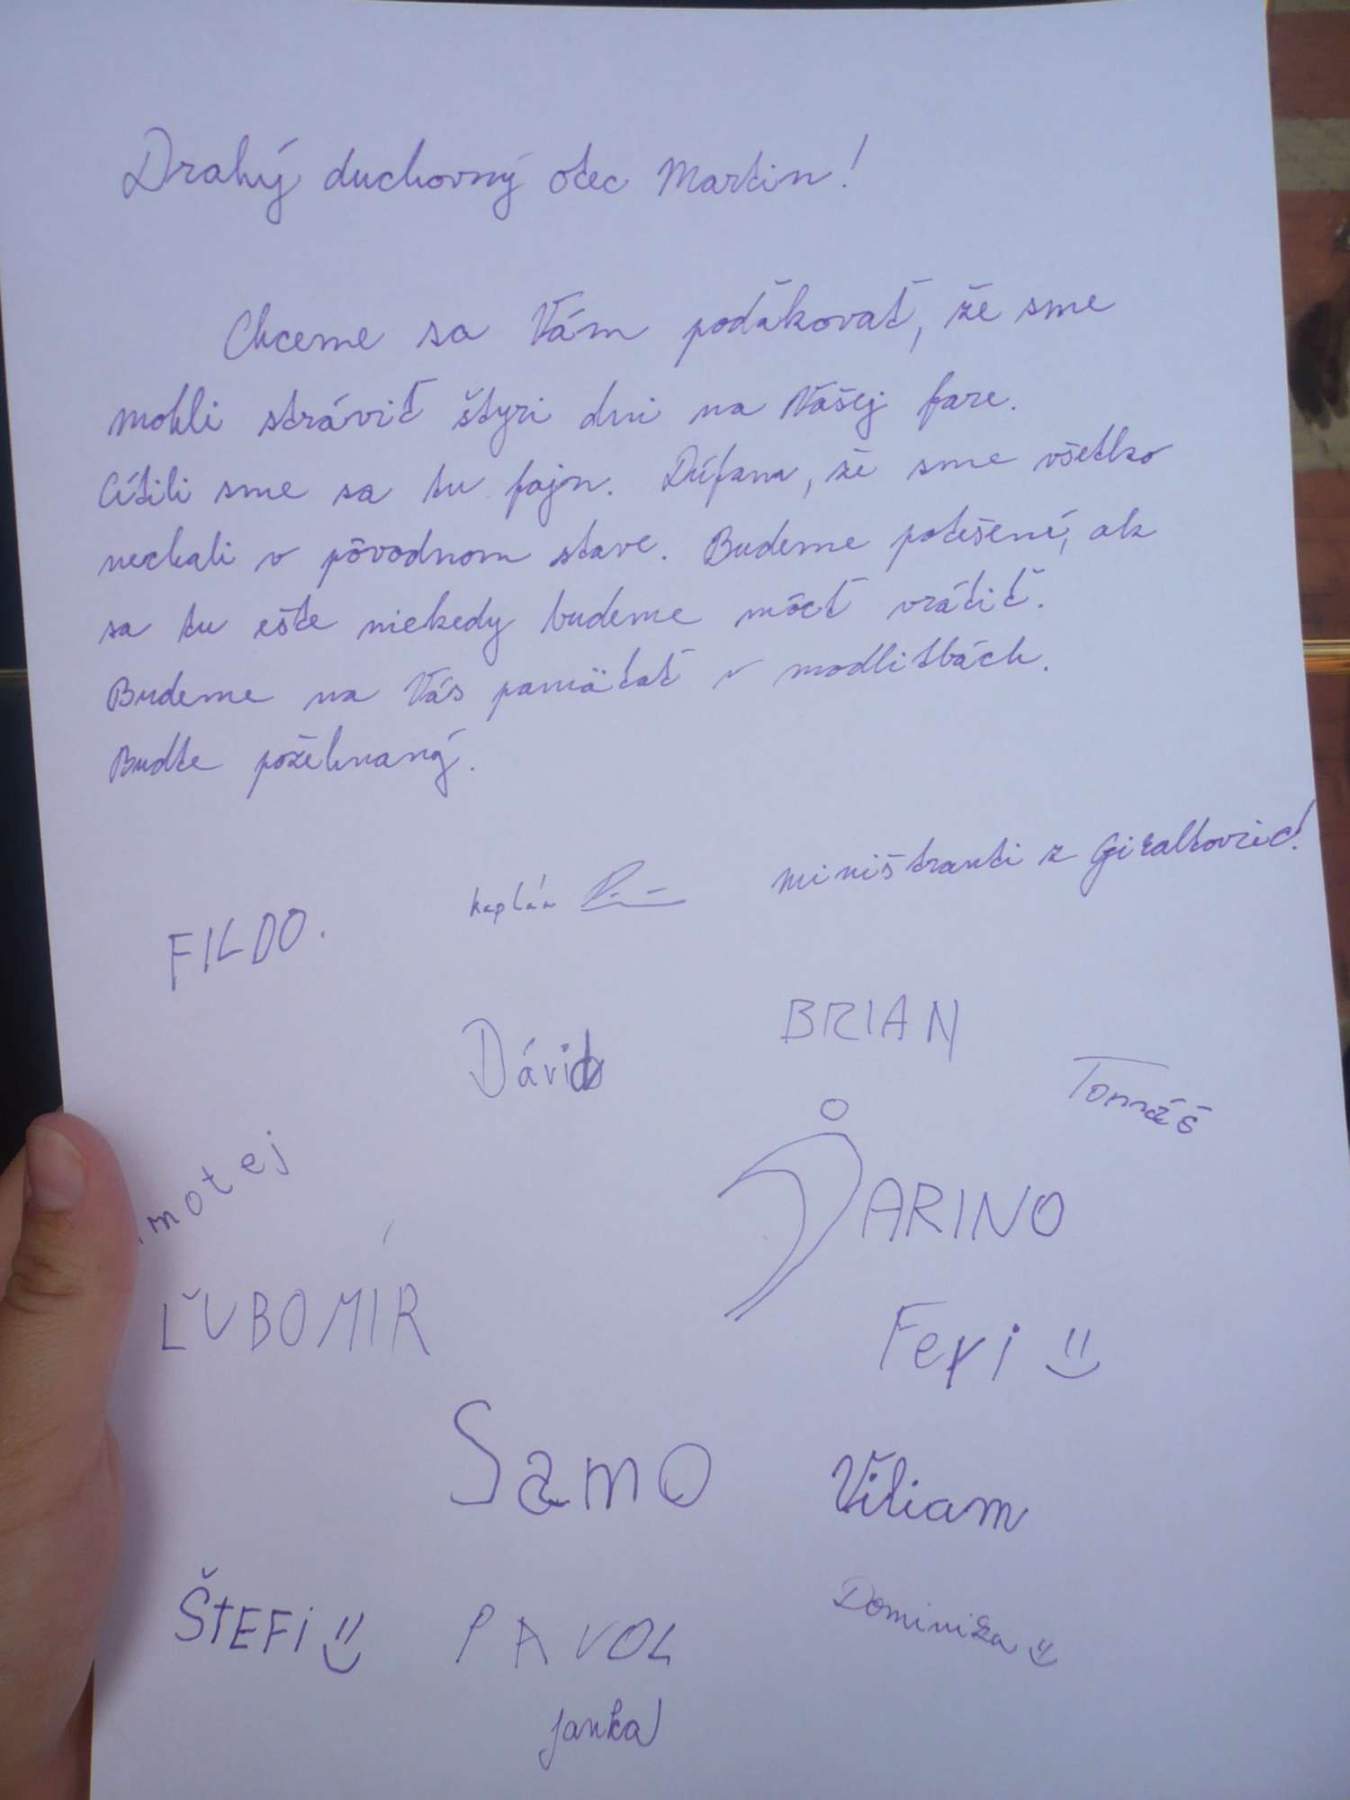 Drahý duchovný otec Martin!
Chceme sa Vám poďakovať, že sme
mohli stráviť štyri dni na Vašej fare.
Cítili sme sa tu fajn. Dúfame, že sme všetko
nechali v pôvodnom stave. Budeme potešení, ak
sa tu ešte niekedy budeme môcť vrátiť.
Budeme na Vás pamätať v modlitbách.
Buďte požehnaný.
kaplán miništranti z Giraltoviec!
FILDO.
BRIAN
Dávid
Tomáš
motej
JARINO
ĽUBOMÍR
Feri
Samo
Viliam
ŠTEFI
PAVOL
Dominika
Janka